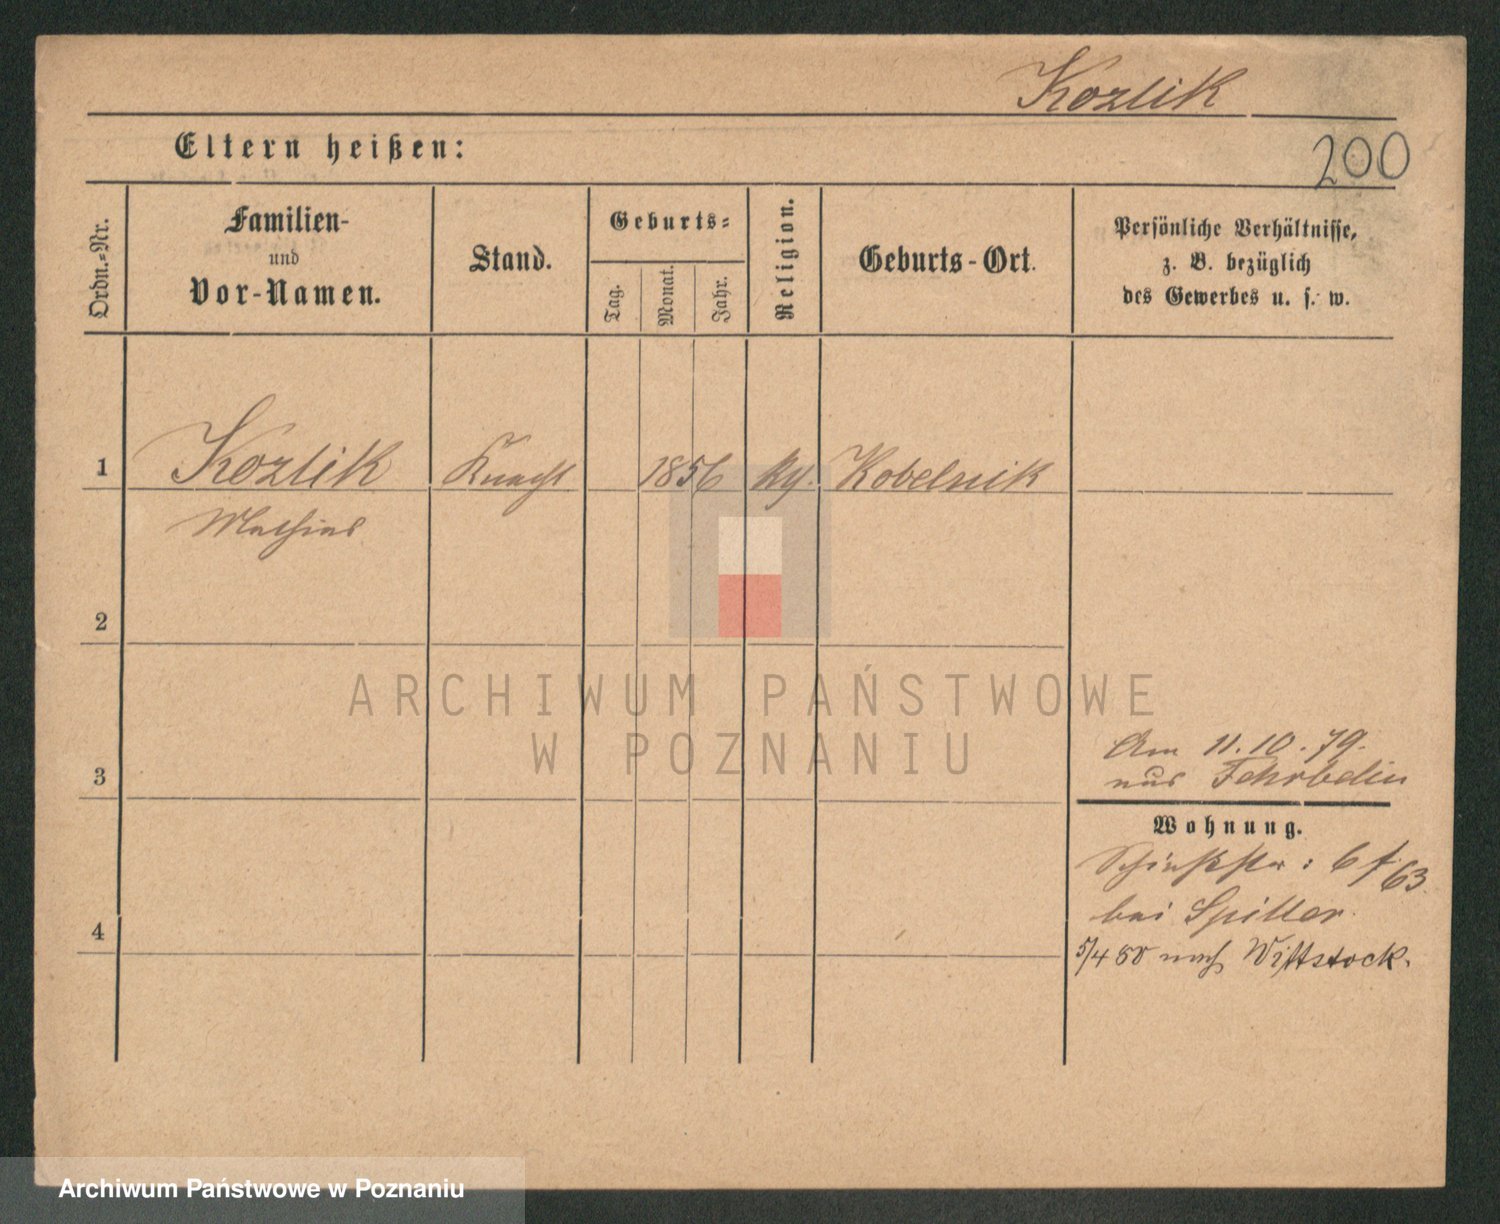 Kozlik
200
Eltern heißen:
Ordn.-Nr.
Familien-
und
Vor-Namen.
Stand.
Geburts-
Tag.
Monat.
Jahr.
Religion.
Geburts-Ort.
Persönliche Verhältnisse,
z. B. bezüglich
des Gewerbes u. s. w.
1 Kozlik Knecht 1856 Kobelnik
Mathias
2
ARCHIWUM PAŃSTWOWE
W POZNANIU
Am 11.10.79.
3
aus Fehrbelin
Wohnung.
bei Spiller.
4
5/4 80 nach Wittstock.
Archiwum Państwowe w Poznaniu